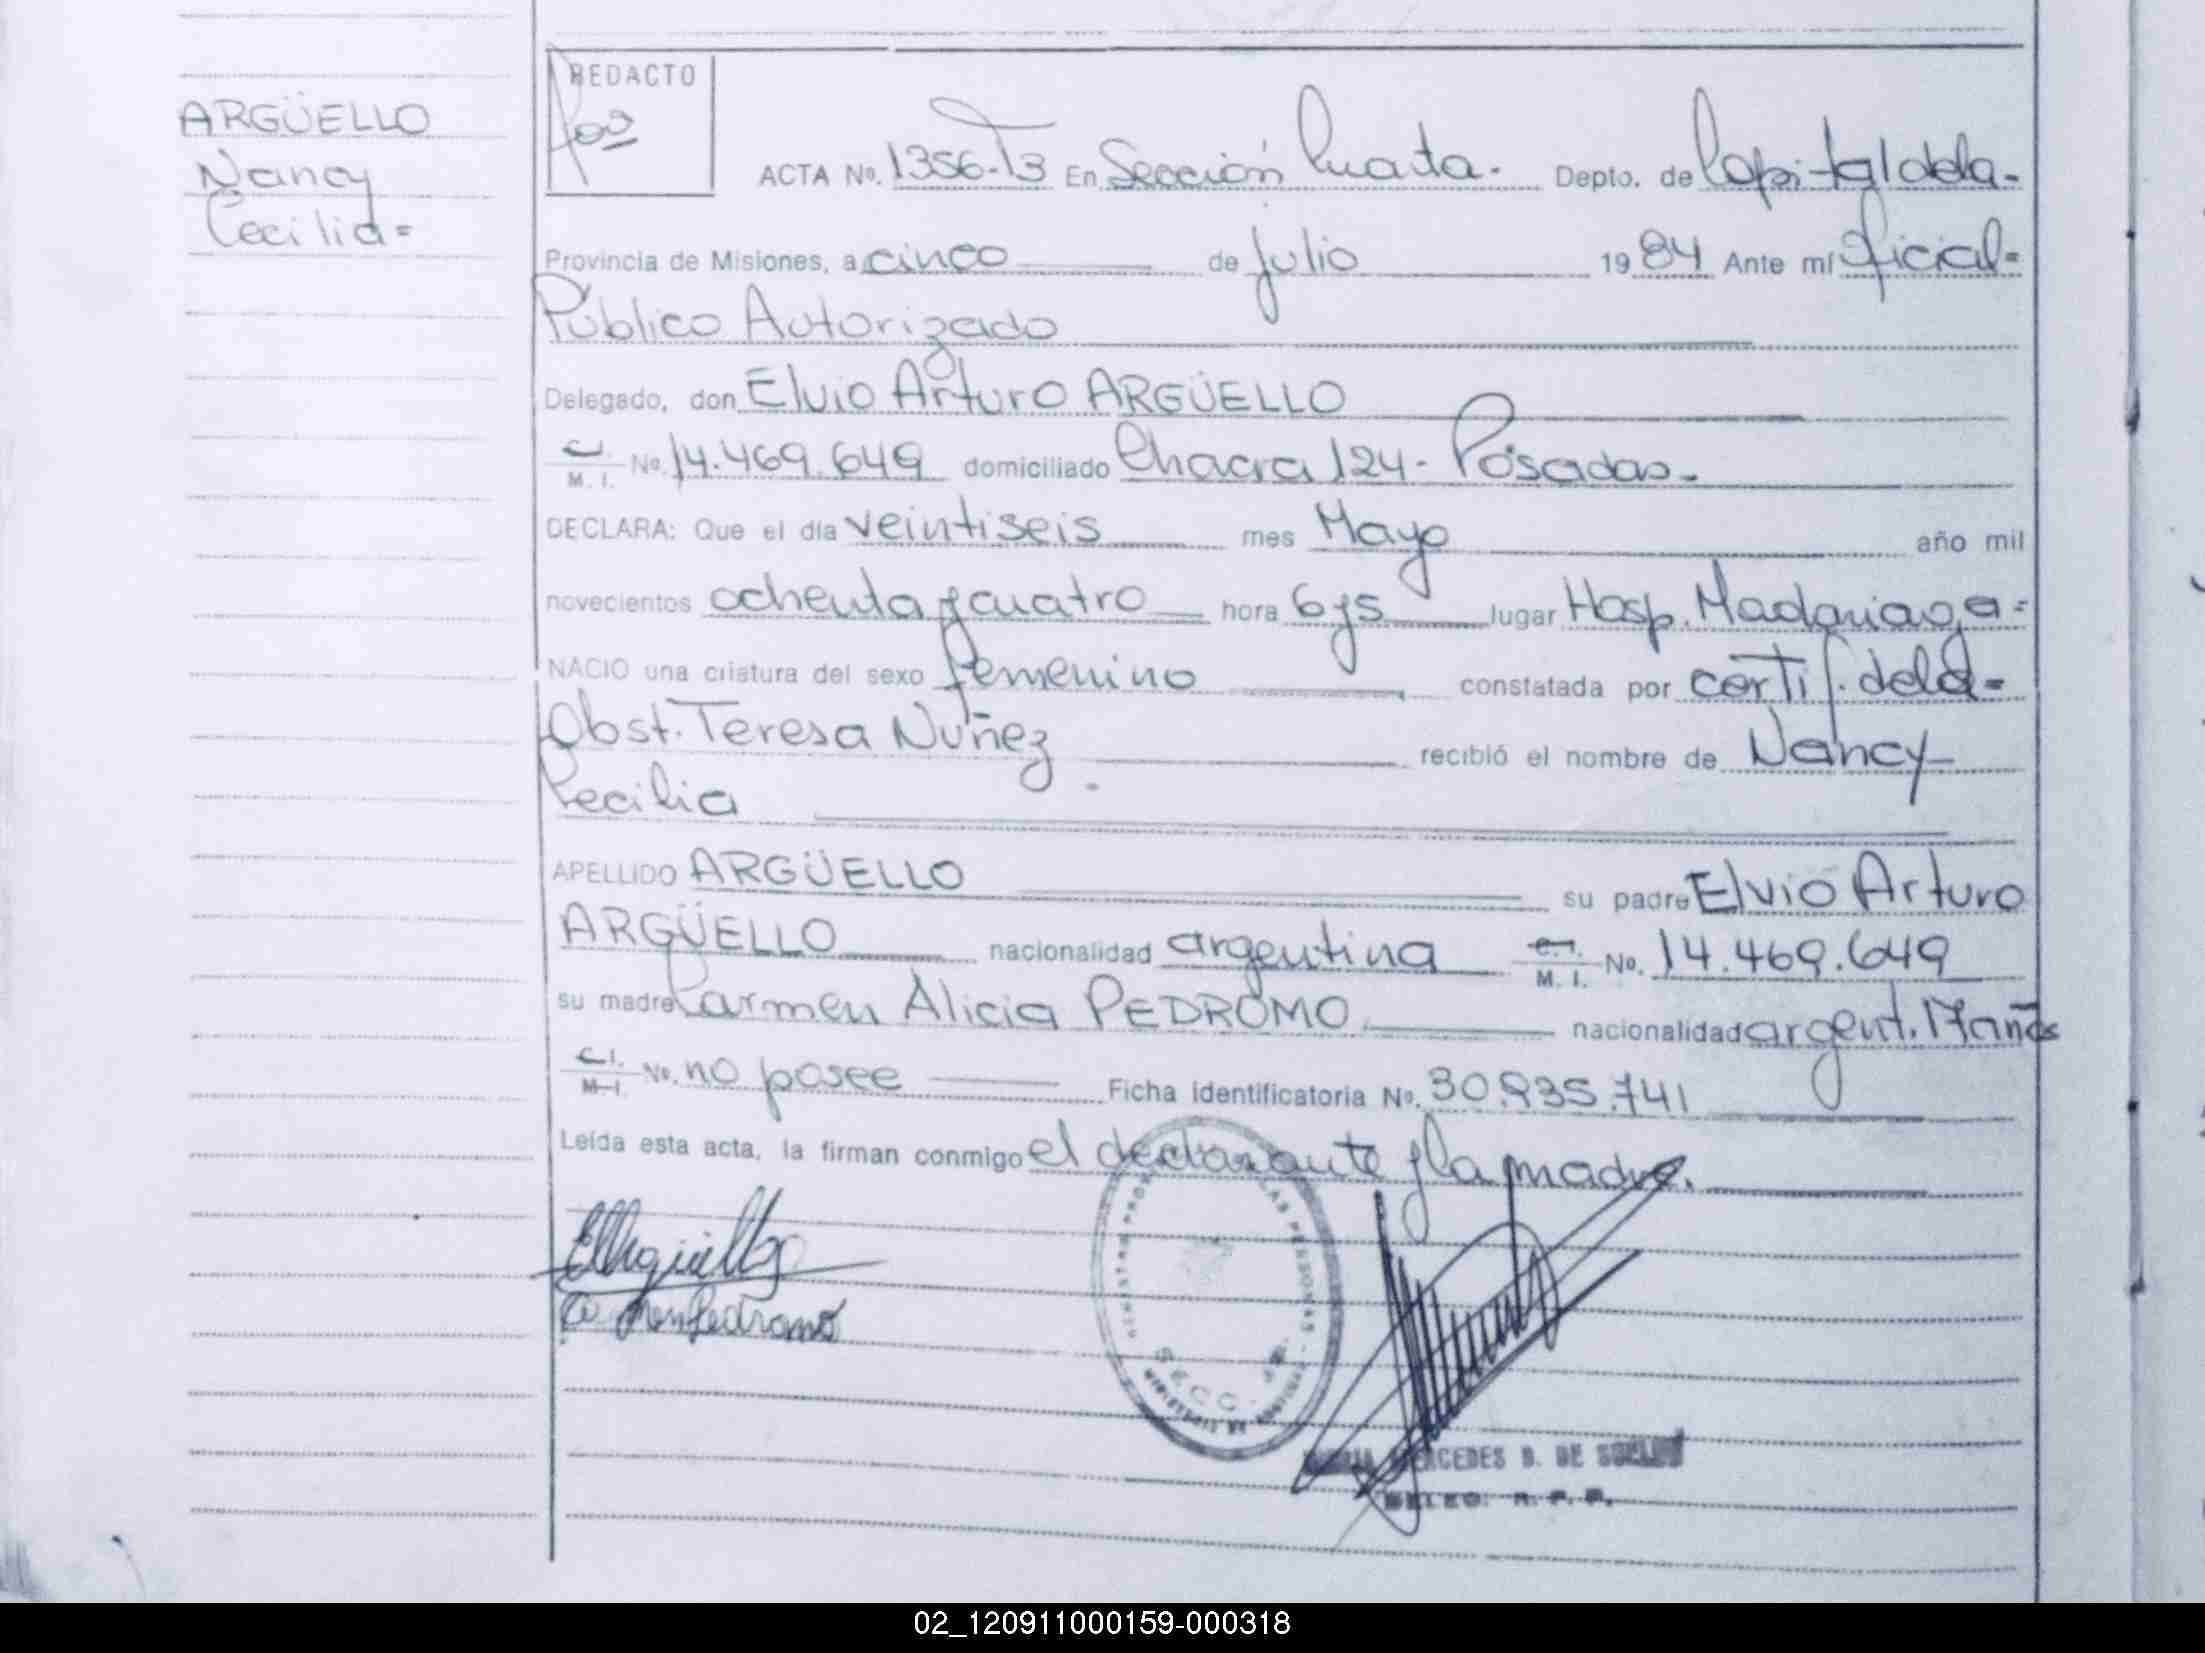 ARGÜELLO
Nancy
Cecilia=
REDACTO
ACTA No. 1356-T3 En Sección Cuarta. Depto. de Capital de la-
Provincia de Misiones, a cinco de julio 1984 Ante mí Oficial=
Público Autorizado
Delegado, don Elvio Arturo ARGÜELLO
C.I.
M. I. No. 14.469.649 domiciliado Chacra 124- Posadas-
DECLARA: Que el día veintiseis mes Mayo año mil
novecientos ochenta y cuatro hora 6ys lugar Hosp. Madariaga=
NACIO una criatura del sexo femenino constatada por certif. de la=
Obst. Teresa Nuñez recibió el nombre de Nancy
Cecilia
APELLIDO ARGÜELLO su padre Elvio Arturo
ARGÜELLO nacionalidad argentina C.I.
M. I. No. 14.469.649
su madre Carmen Alicia PEDROMO nacionalidad argent. 17 años
C.I.
M.I. No. no posee Ficha identificatoria No. 30.935.741
Leída esta acta, la firman conmigo el declarante y la madre.
EAArgüello
SECC.
MERCEDES B. DE
DELEG. R. P. P.
02_120911000159-000318